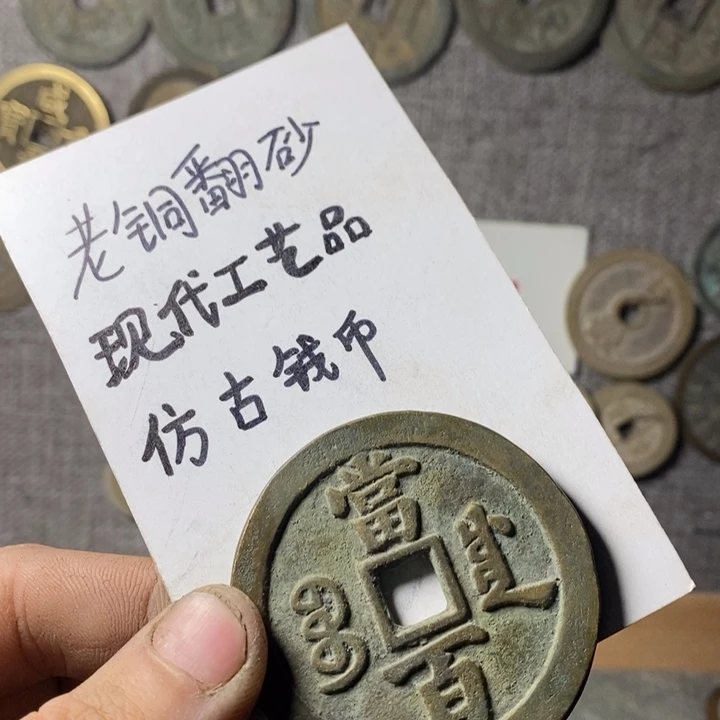 老铜翻砂
现代工艺品
仿古钱币
當
百